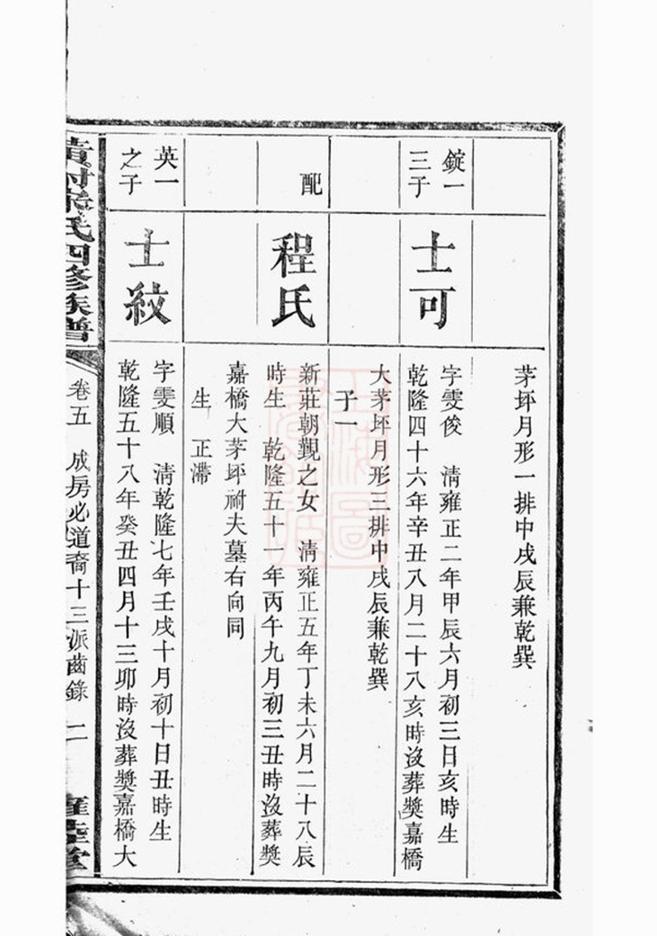 茅坪月形一排中戌辰兼乾巽
錠一
三子
士可
字雯俊 清雍正二年甲辰六月初三日亥時生
乾隆四十六年辛丑八月二十八亥時沒葬獎嘉橋
大茅坪月形三排中戌辰兼乾巽
子一
配
程氏
新莊朝覲之女 清雍正五年丁未六月二十八辰
時生 乾隆五十一年丙午九月初三丑時沒葬獎
嘉橋大茅坪祔夫墓右向同
生 正滯
英一
之子
士紋
字雯順 清乾隆七年壬戌十月初十日丑時生
乾隆五十八年癸丑四月十三卯時沒葬獎嘉橋大
氏四修族譜
卷五 成房必道裔十三派齒錄 二
堂